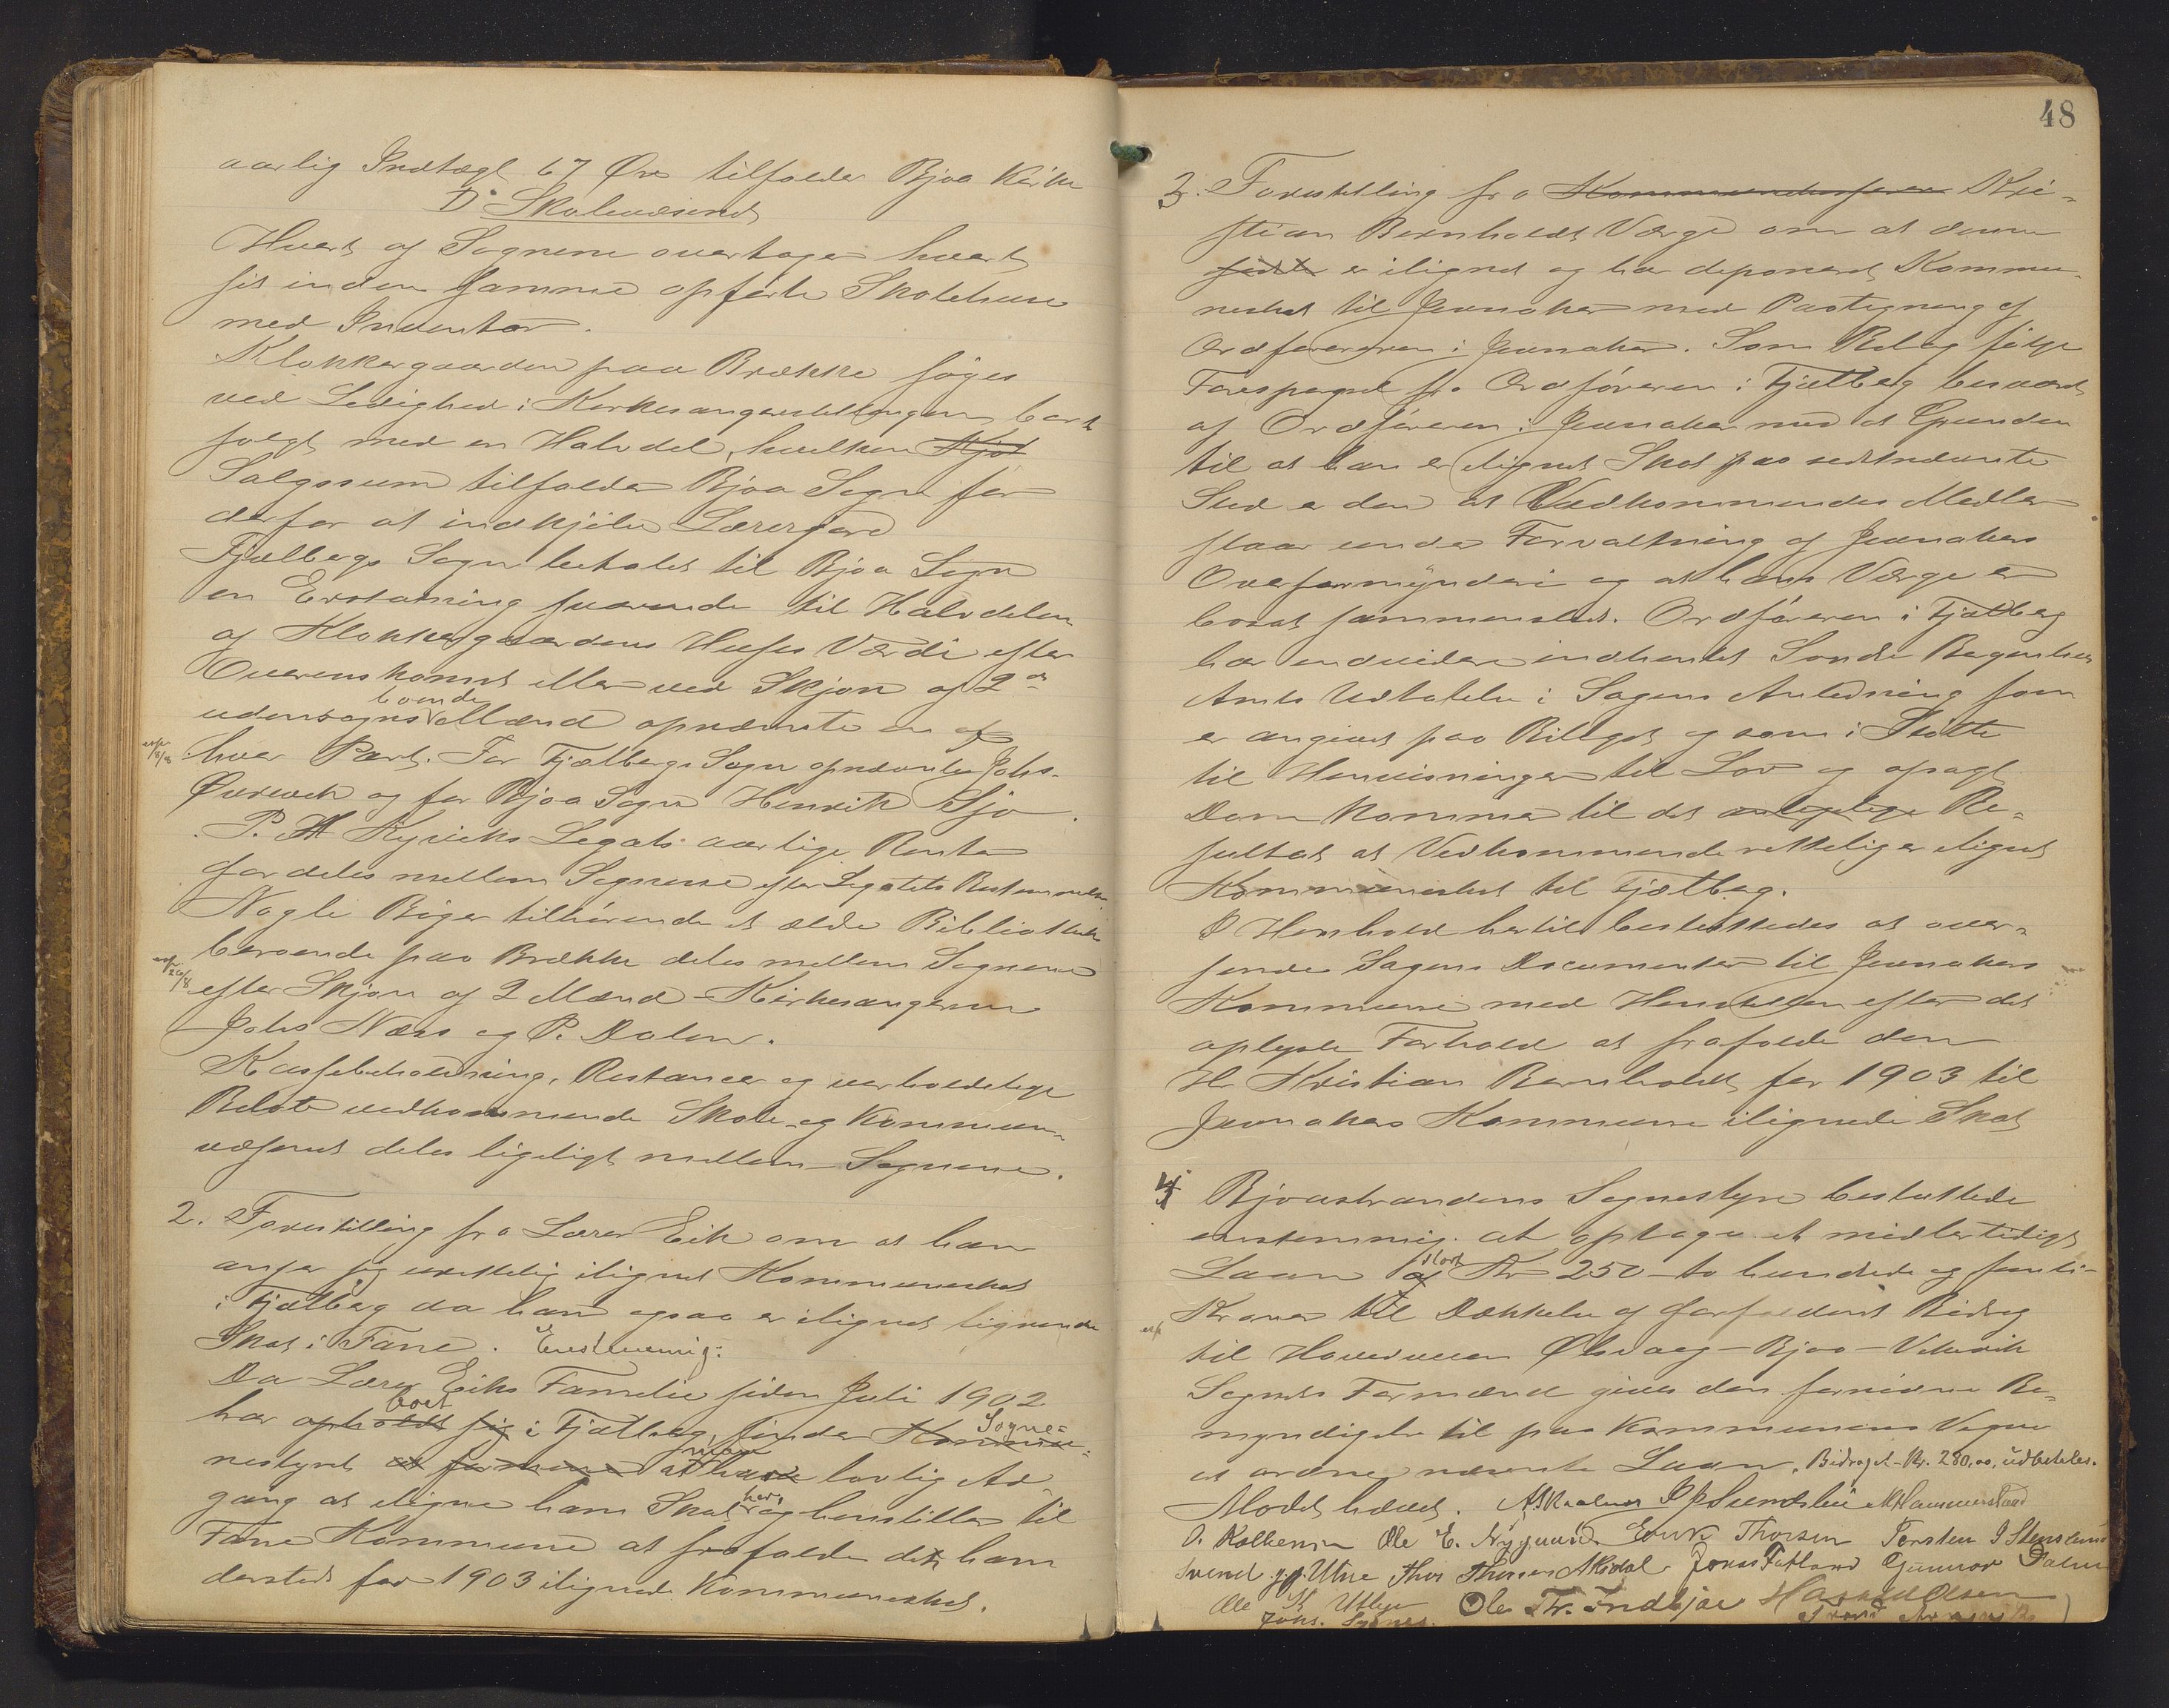 aarlig Indtægt 67 Øre tilfalder Bjoa Kirke
D. Skolevæsenet
Hvert af Sognene overtager hvert
sit inden samme opførte Skolehuse
med Inventar.
Klokkergaarden paa Brække søges
ved Ledighed i Kirkesangerstillingen bort
solgt med en Halvdel, hvilken
Salgssum tilfalder Bjoa Sogn for
derfor at indkjøbe Lærergaard
Fjælbergs Sogn betaler til Bjoa Sogn
en Erstatning svarende til Halvdelen
af Klokkergaardens Huses Værdi efter
Overenskomst eller ved Skjøn af 2de
udensogns boende Mænd opnævnte en af
hver Part. For Fjælbergs Sogn opnævntes Johs.
Ørevik og for Bjoa Sogn Henrik Sjo.
P. H Kyviks Legats aarlige Renter
fordeles mellem Sognene efter Legatets Bestemmelser.
Nogle Bøger tilhørende et ældre Bibliothek
beroende paa Brække deles mellem Sognene
efter Skjøn af 2 Mænd – Kirkesangerne
Johs Næss og P. Dalen.
Kassebeholdning, Restancer og uerholdelige
Beløb vedkommende Skole og Kommune-
væsenet deles ligeligt mellem Sognene.
2. Forestilling fra Lærer Eik om at han
anser sig urettelig ilignet Kommuneskat
i Fjælberg da han ogsaa er ilignet lignende
Skat i Fane. Enstemmig:
Da Lærer Eiks Familie siden Juli 1902
har opholdt sig boet i Fjælberg, finder Kommu- Sogne=
nestyret at have lovlig Ad-
gang at iligne ham Skat her, og henstiller til
Fane Kommune at frafalde den ham
dersteds for 1903 ilignede Kommuneskat.
48
3. Forestilling fra Kommunekasseren Kri-
stian Bernholdts Værge om at denne
er ilignet og har deponeret Kommu-
neskat til Jevnaker med Paategning af
Ordføreren i Jevnaker. Som Bilag følger
Forespørgsel fra Ordføreren i Fjælberg besvaret
af Ordføreren i Jevnaker med at Grunden
til at han er ilignet Skat paa sidstnævnte
Sted er den at Vedkommendes Midler
staar under Forvaltning af Jevnakers
Overformynderi og at hans Værge er
bosat sammesteds. Ordføreren i Fjælberg
har endvidere indhentet Søndre Bergenhus
Amts Udtalelse i Sagens Anledning som
er angivet paa Bilaget og som i Støtte
til Henvisninger til Lov og afsagt
Dom kommer til det Re-
sultat at Vedkommende rettelig er ilignet
Kommuneskat til Fjælberg.
I Henhold hertil besluttedes at over-
sende Sagens Documenter til Jevnakers
Kommune med Henstillen efter det
oplyste Forhold at frafalde den
Hr Kristian Bernholdt for 1903 til
Jevnakers Kommune ilignede Skat
4 Bjoastrandens Sognestyre besluttede
enstemmig at optage et midlertidigt
Laan stort Kr 250 – to hundrede og femti –
Kroner til Dækkelse af forfaldent Bidrag
til Hovedveien Ølsvaag – Bjoa – Vikevik
Sognets Formænd gives den fornødne Be-
myndigelse til paa Kommunens Vegne
at ordne nævnte Laan. Bidraget Kr. 280,00, udbetales.
Mødet hævet. M Hammersland
O. Kalkenin Ole E. Nygaard Erik Thorsen Torsten I Stensland
Svend Utne Thor Thorsen Jonas Fatland Gunnar Dalen
Ole Utbjoe Ole Tr. Indbjoe
Johs. Sydnes.